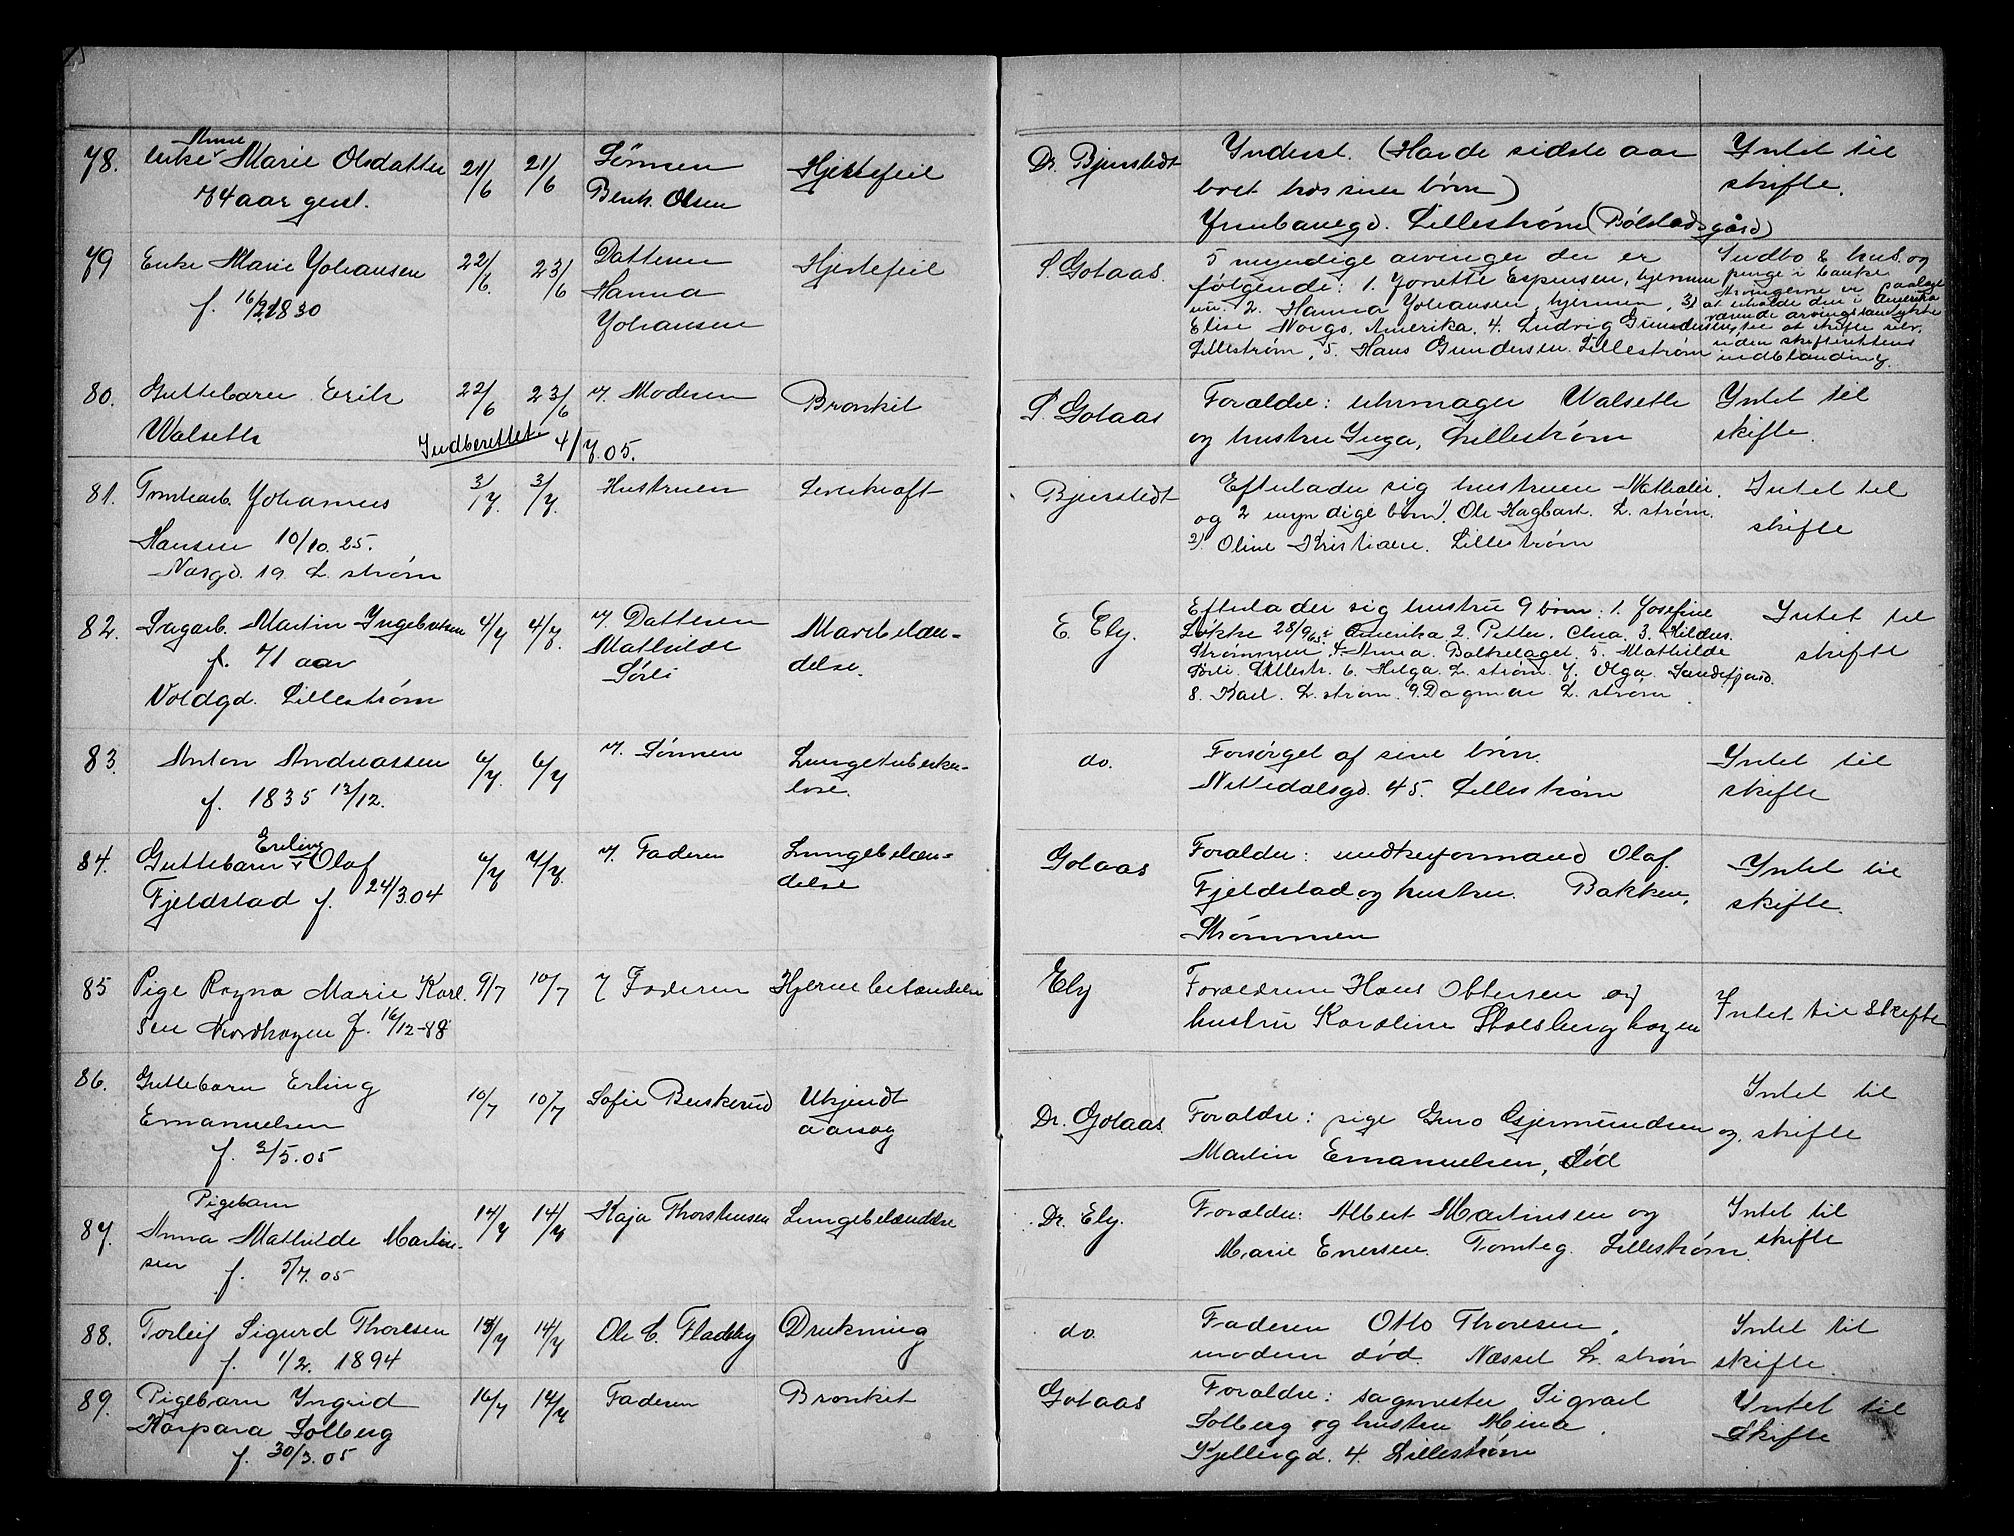 78. Enke Anne Marie Olsdatter 21/6 21/6 Sønnen Hjertefeil Dr. Bjerstedt Inderst. (Havde sidste aar Intet til
74 aar gml. Bernh. Olsen boet hos sine børn) skifte.
Lillestrøm (Bølstadsgård)
79 Enke Marie Johansen 22/6 23/6 Datteren Hjertefeil S. Gotaas 5 myndige arvinger der er Indbo & hus og
f. 16/2 1830 Hanna følgende: 1. Jonette Espensen, hjemme penge i banke
Johansen 2. Hanna Johansen, hjemme, 3) Arvingerne er paalagt
Elise Norgs. Amerika. 4. Ludvig Gundersen, at indholde den i Amerika
Lillestrøm, 5. Hans Gundersen. Lillestrøm til at skifte selv
uden skifterettens
indblanding.
80. Guttebarn Erik 22/6 23/6 Moderen Bronkit S. Gotaas Forældre: uhrmager Walseth Intet til
Walseth og hustru Inga, Lillestrøm skifte.
Indberettet 4/7.05.
81. Tomtearb. Johannes 3/7. 3/7. Hustruen Leverkræft Bjerstedt Efterlader sig hustruen Nathalie. Intet til
Hansen 10/10.25. og 2 myndige børn 1. Ole Hagbart. L. strøm. skifte
19. L. strøm 2). Oline Kristiane. Lillestrøm
82. Sagarb. Martin Ingebretsen 4/7 4/7. Datteren Mavebetæn- E. Ely. Efterlader sig hustru 9 børn: 1. Josefine Intet til
f. 71 aar Mathilde delse. Løkke 28/9 65 i Amerika 2. Petter. 3. skifte
Voldgd. Lillestrøm Sørli Strømmen 4. Anna. 5. Mathilde
Sørli. Lillestr. 6. Helga L. strøm. 7. Olga. Sandefjord.
8. Karl. L. strøm. 9. Dagmar L. strøm
83. Anton Andreassen 6/7. 6/7 Sønnen Lungetuberku- do. Forsørget af sine børn. Intet til
f. 1835 13/12. lose. Nittedalsgd. 45. Lillestrøm skifte
84. Guttebarn Erling Olaf 6/7 7/7. Faderen Lungebetæn- Gotaas Forældre: Olaf Intet til
Fjeldstad f. 24/3.04 delse Fjeldstad og hustru. Bakken, skifte.
Strømmen
85 Pige Ragna Marie Karl- 9/7 10/7 Faderen Hjernebetændelse Ely Forældrene Hans Ottersen og Intet til Skifte
sen Nordhagen f. 16/12-88 hustru Karoline Stalsberghagen
86. Guttebarn Erling 10/7 10/7 Sofie Buskerud Ukjendt Dr. Gotaas Forældre: pige Gjermundsen og Intet til
Emanuelsen aarsag Martin Emanuelsen, død skifte
f. 3/5.05
87. Pigebarn
Anna Mathilde Martin- 14/7 14/7 Kaja Thorstensen Lungebetændelse Dr. Ely. Forældre: Albert Martinsen og Intet til
sen f. 5/7.05 Marie Enersen. Tomteg. Lillestrøm skifte
88. Torleif Sigurd Thoresen 13/7 14/7 Ole C. Fladeby Drukning do. Faderen Otto Thoresen. Intet til
f. 1/2. 1894 modern død. Næsset L. strøm skifte.
89. Pigebarn Ingrid 16/7 17/7 Faderen Bronkit Gotaas Forældre: sagmester Sigvart Intet til
Kaspara Solberg Solberg og hustru Mina. Skifte
f. 30/3.05 Kjellergd. 4. Lillestrøm